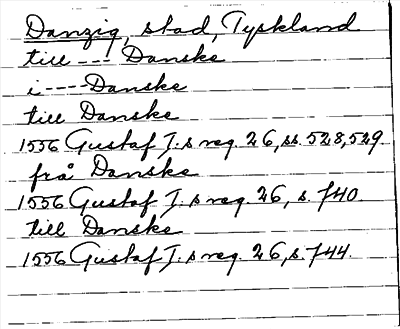 Danzig, stad, Tyskland
till --- Danske
i ---- Danske
till Danske
1556 Gustaf I.s reg. 26, ss. 528, 529.
frå Danske
1556 Gustaf I.s reg. 26, s. 740.
till Danske
1556 Gustaf I.s reg. 26, s. 744.